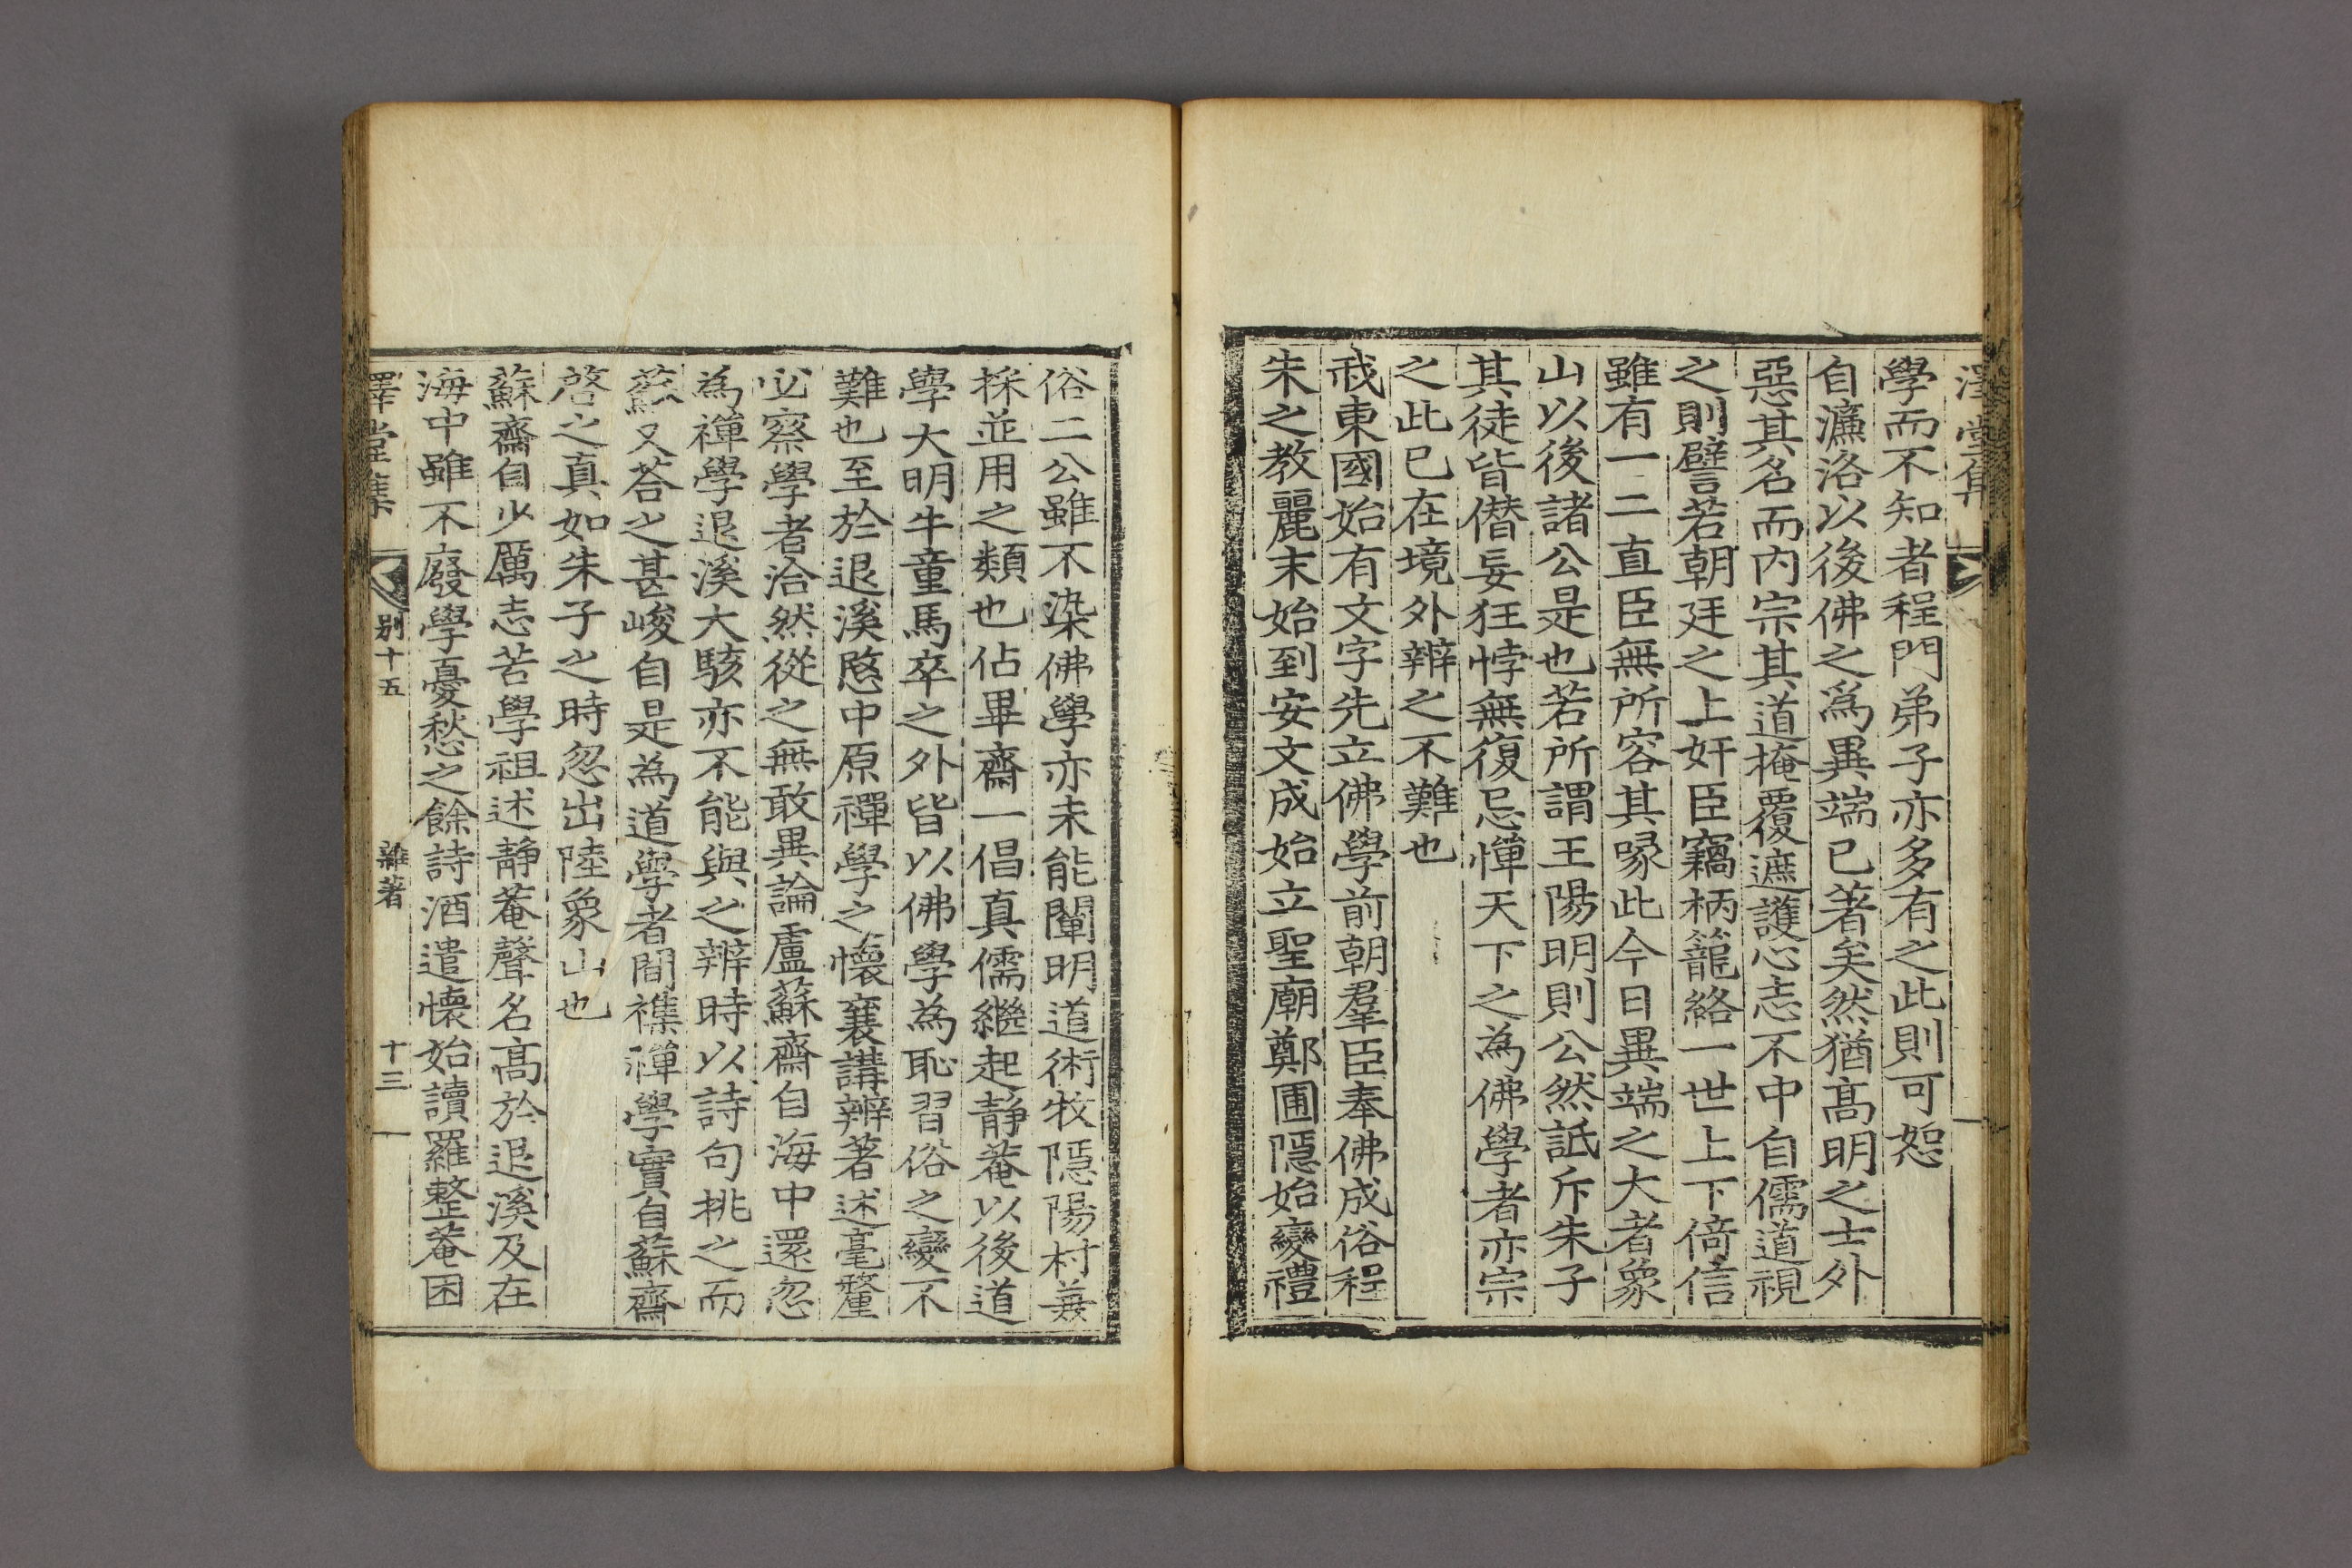 澤堂集
學而不知者程門弟子亦多有之此則可恕
自濂洛以後佛之爲異端已著矣然猶髙明之士外
惡其名而内宗其道掩覆遮護心志不中自儒道視
之則譬若朝廷之上奸臣竊柄籠絡一世上下倚信
雖有一二直臣無所容其喙此今日異端之大者象
山以後諸公是也若所謂王陽明則公然詆斥朱子
其徒皆僣妄狂悖無復忌憚天下之為佛學者亦宗
之此已在境外辨之不難也
我東國始有文字先立佛學前朝羣臣奉佛成俗程
朱之教麗末始到安文成始立聖廟鄭圃隱始變禮
俗二公雖不染佛學亦未能闡明道術牧隱陽村兼
採並用之類也佔畢齋一倡真儒繼起靜菴以後道
學大明牛童馬卒之外皆以佛學為恥習俗之變不
難也至於退溪慜中原禪學之懷襄講辨著述毫釐
必察學者洽然從之無敢異論盧蘇齋自海中還忽
為禪學退溪大駭亦不能與之辨時以詩句挑之而
蘓又荅之甚峻自是為道學者間襍禪學實自蘇齋
啓之真如朱子之時忽出陸象山也
蘇齋自少厲志苦學祖述靜菴聲名高於退溪及在
海中雖不廢學憂愁之餘詩酒遣懷始讀羅整菴困
澤堂集 别十五 雜著 十三